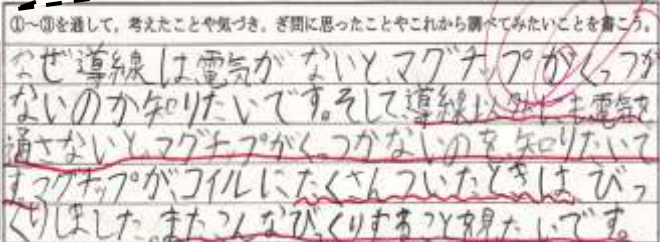 ①～③を通して，考えたことや気づき，ぎ問に思ったことやこれから調べてみたいことを書こう。
なぜ導線は電気がないと、マグチップがくっつか
ないのか知りたいです。そして、導線以外にも電気を
通さないと、マグチップがくっつかないのを、知りたいで
す。マグチップが、コイルにたくさんついたときは、びっ
くりしました。またこんなびっくりすることを見たいです。